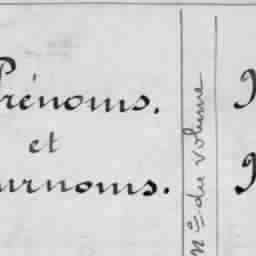 Prénoms.
et
urnoms.
Nº du volume